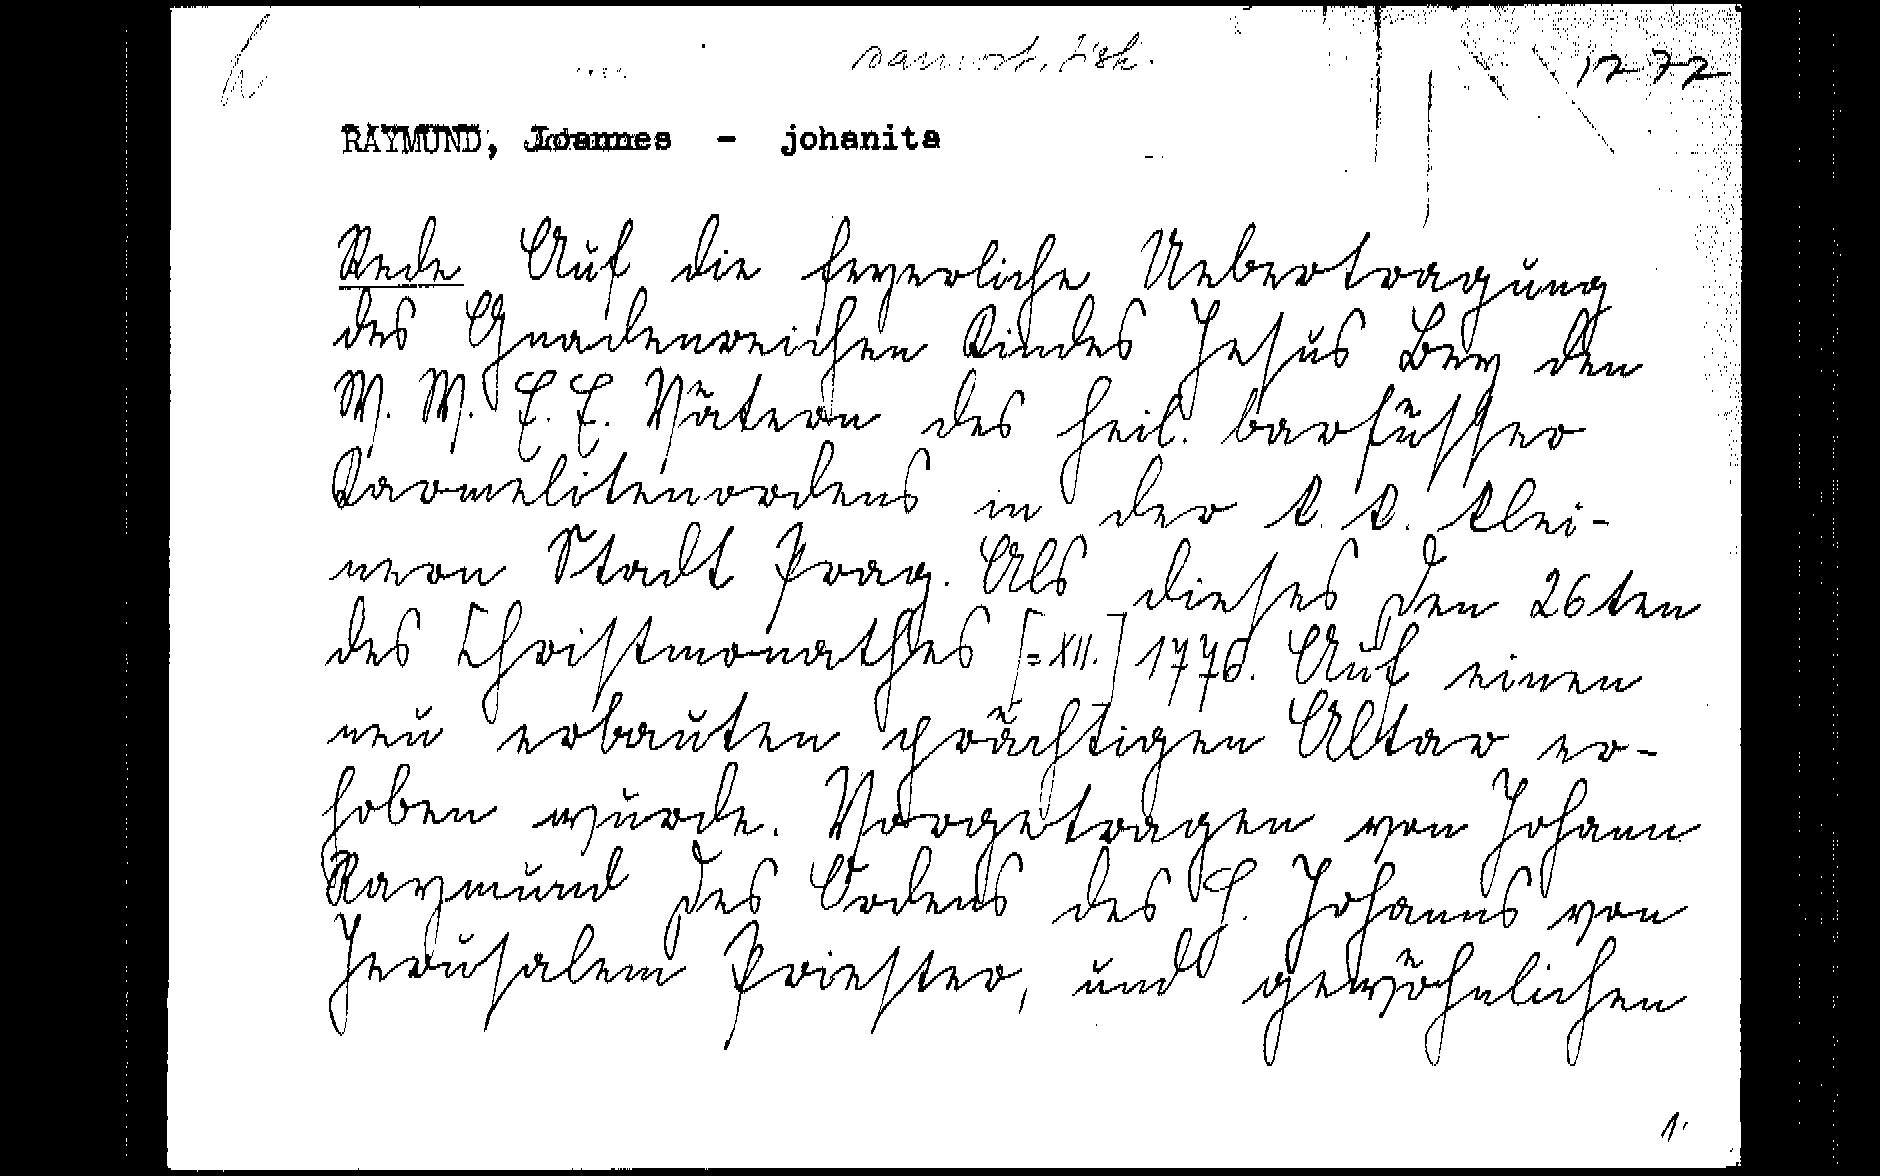 h
samost. tisk.
1272
RAYMUND, Joannes - johanita
Rede Auf die feyerliche Uebertragung
des Gnadenreichen Kindes Jesus Bey den
W. W. E. E. Vätern des heil. barfüsser
Karmelitenordens in der k. k. klei-
nern Stadt Prag. Als dieses den 26ten
des Christmonathes [=XII.] 1776. Auf einen
neu erbauten prächtigen Altar er-
hoben wurde. Vorgetragen von Johann
Raymund des Ordens des H. Johanns von
Jerusalem Priester, und gewöhnlichen
1.